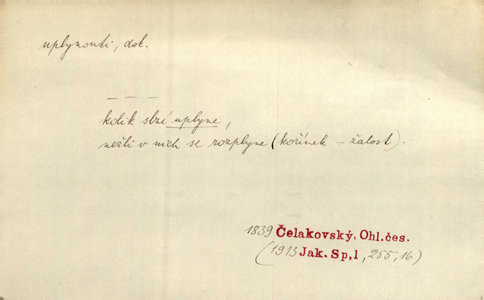 uplynouti, dok.
— — —
kolik slzí uplyne,
nežli v nich se rozplyne (kořínek – žalost).
1839 Čelakovský. Ohl.čes.
(1913 Jak. Sp,I, 255, 16)